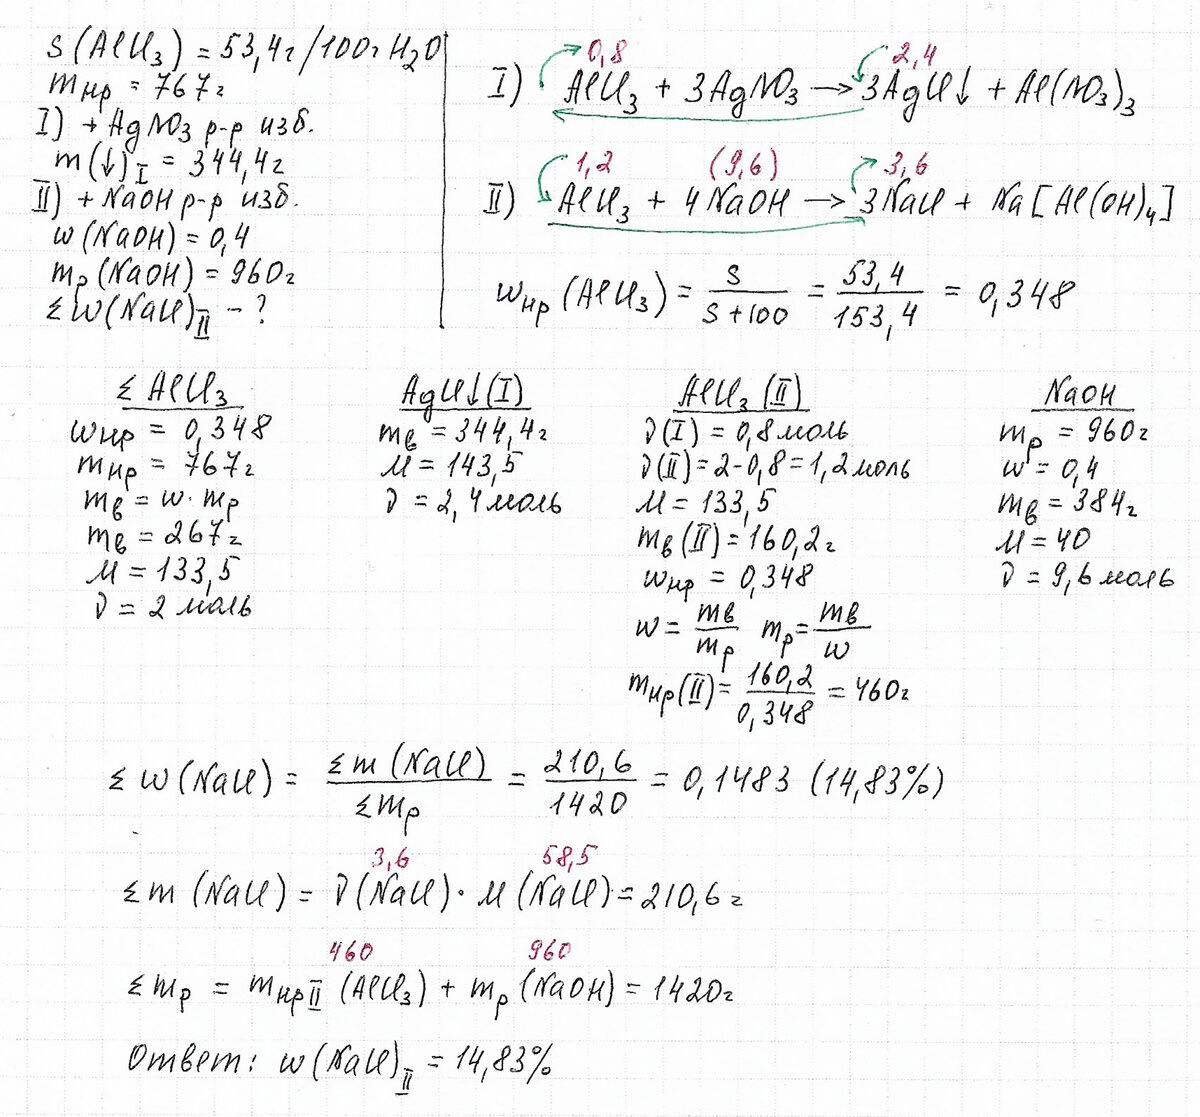 S(AlCl₃) = 53,4г/100г H₂O
mнр = 767г
I) + AgNO₃ р-р изб.
m(↓)I = 344,4г
II) + NaOH р-р изб.
w(NaOH) = 0,4
mр(NaOH) = 960г
Σw(NaCl)II - ?
0,8 2,4
I) AlCl₃ + 3AgNO₃ → 3AgCl↓ + Al(NO₃)₃
1,2 (9,6) 3,6
II) AlCl₃ + 4NaOH → 3NaCl + Na[Al(OH)₄]
wнр(AlCl₃) = S/(S+100) = 53,4/153,4 = 0,348
Σ AlCl₃
wнр = 0,348
mнр = 767г
mв = w · mр
mв = 267г
M = 133,5
ν = 2 моль
AgCl↓(I)
mв = 344,4г
M = 143,5
ν = 2,4 моль
AlCl₃(II)
ν(I) = 0,8 моль
ν(II) = 2-0,8 = 1,2 моль
M = 133,5
mв(II) = 160,2г
wнр = 0,348
w = mв/mр mр = mв/w
mнр(II) = 160,2/0,348 = 460г
NaOH
mр = 960г
w = 0,4
mв = 384г
M = 40
ν = 9,6 моль
Σ w(NaCl) = Σm(NaCl)/Σmр = 210,6/1420 = 0,1483 (14,83%)
3,6 58,5
Σm(NaCl) = ν(NaCl) · M(NaCl) = 210,6г
460 960
Σmр = mнрII(AlCl₃) + mр(NaOH) = 1420г
Ответ: w(NaCl)II = 14,83%